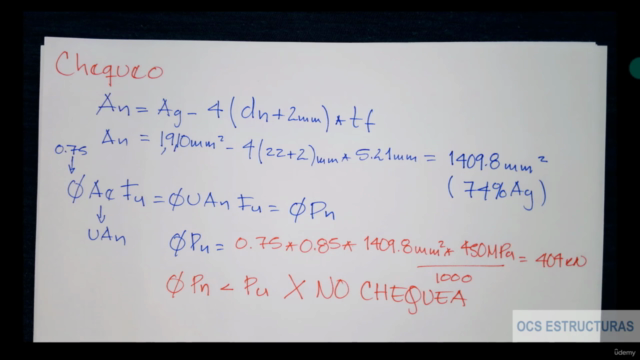 Chequeo
An = Ag - 4 (dn+2mm) * tf
An = 1,910mm² - 4(22+2)mm * 5.21mm = 1409.8mm²
(74%Ag)
0.75
ØAe Fu = ØUAn Fu = ØPn
UAn
ØPn = 0.75*0.85* 1409.8mm² * 450MPa / 1000 = 404kN
ØPn < Pu X NO CHEQUEA
OCS ESTRUCTURAS
ûdemy